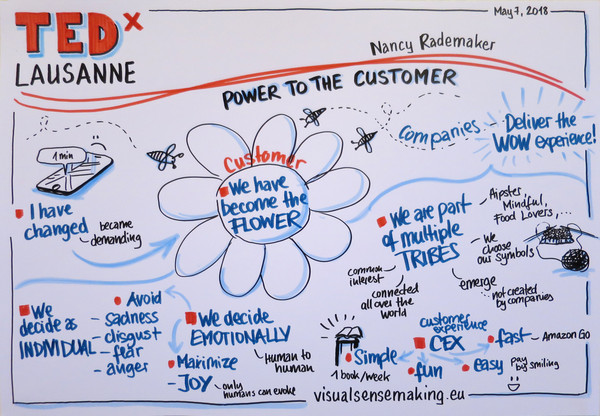 TEDx
LAUSANNE
May 7, 2018
Nancy Rademaker
POWER TO THE CUSTOMER
1 min
I have
changed
became
demanding
Customer
We have
become the
FLOWER
Companies
Deliver the
WOW experience!
We are part
of multiple
TRIBES
Hipster,
Mindful,
Food Lovers,...
We
choose
our symbols
emerge
...not created
by companies
common
interest
connected
all over the
world
We
decide as
INDIVIDUAL
Avoid
- sadness
- disgust
- fear
- anger
We decide
EMOTIONALLY
Human to
human
Maximize
- JOY
only
humans can evoke
customer
experience
CEX
Simple
1 book/week
fun
fast
Amazon Go
easy
pay
by smiling
visualsensemaking.eu